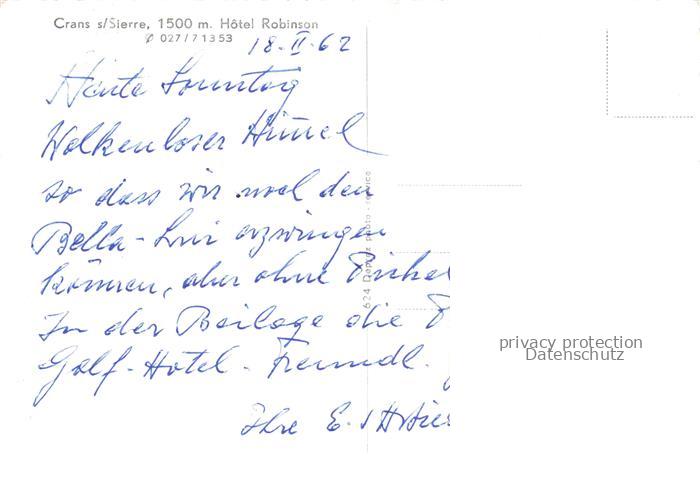 Crans s/Sierre, 1500 m. Hôtel Robinson
✆ 027/71353
18.II.62
Heute Sonntag
Wolkenloser Himmel
so dass wir wol den
Bella-Lui erzwingen
können, aber ohne
In der Beilage die
Golf-Hotel- Freundl.
Ihre E.
624 photo-service
privacy protection
Datenschutz